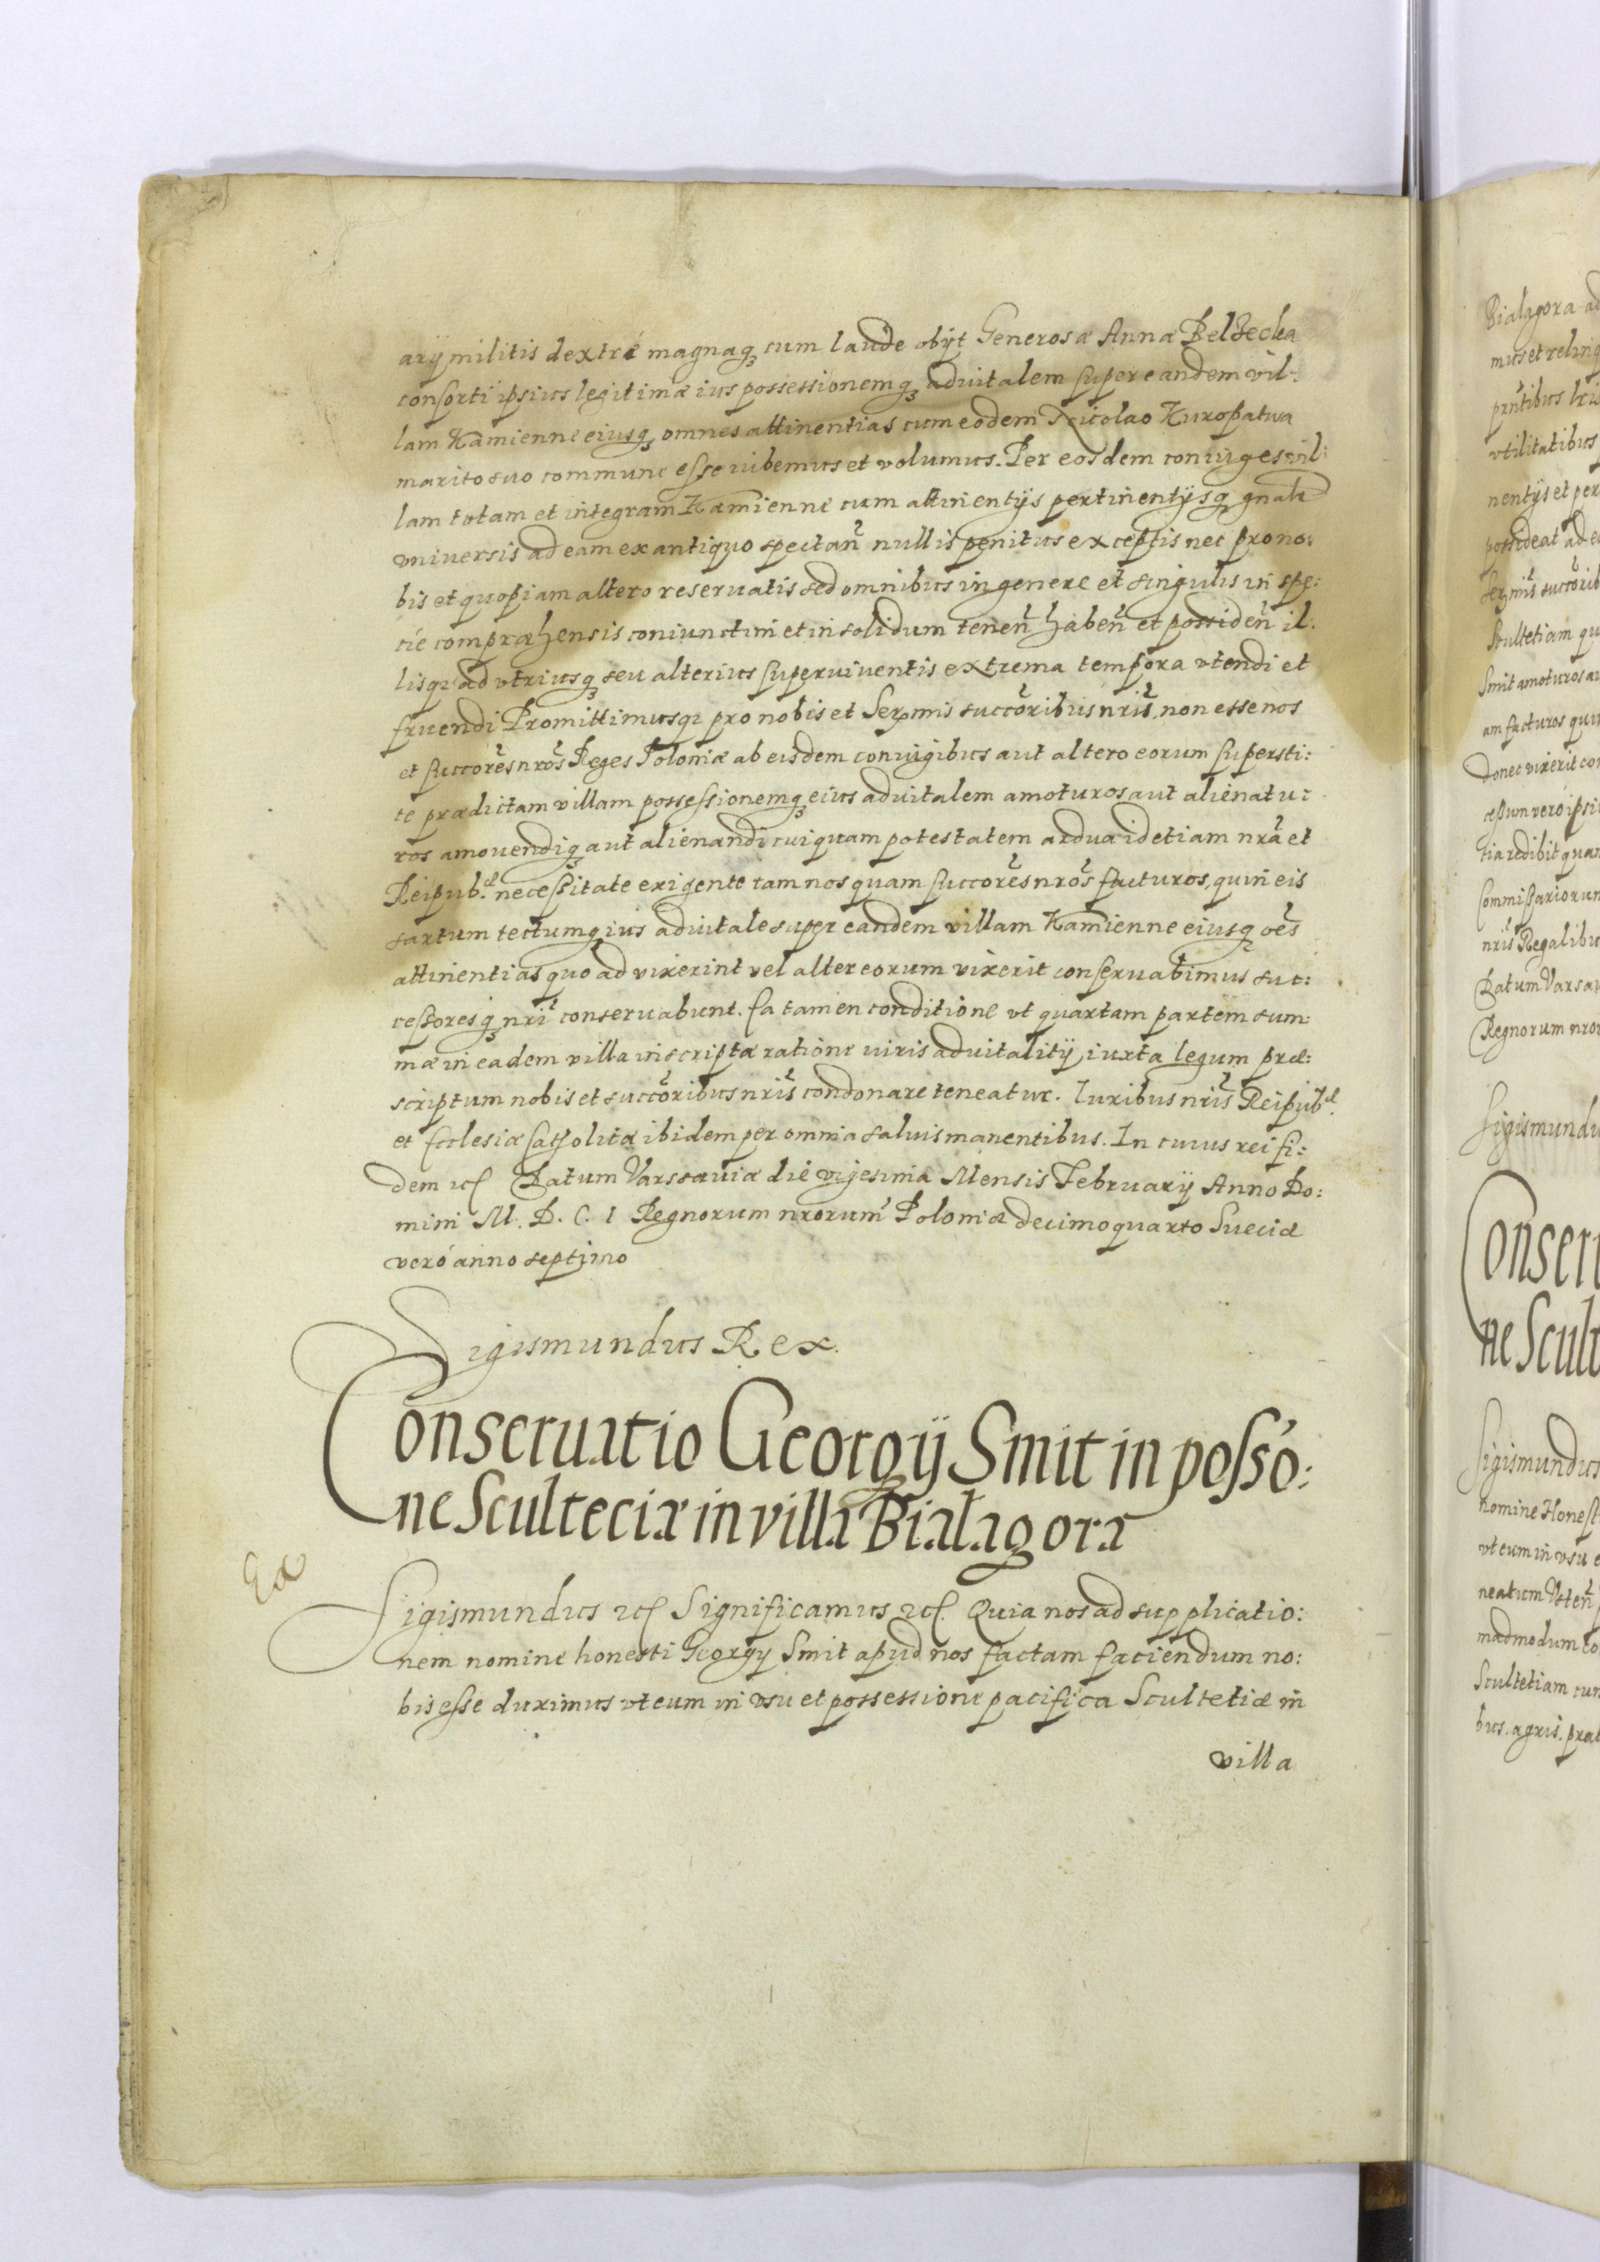 arij militis dextré magnaq; cum laude obijt Generosæ Annæ Belzecka
consorti ipsius legitimæ ius possessionemq; aduitalem super eandem vil:
lam Kamienne eiusq; omnes attinentias cum eodem Nicolao Kuropatwa
marito suo commune esse iubemus et volumus. Per eosdem coniuges vil:
lam totam et integram Kamienne cum attinentijs pertinentijsq; gnalr
vniversis ad eam ex antiquo spectan̄ nullis penitus exceptis nec pro no:
bis et quopiam altero reseruatis sed omnibus in genere et singulis in spe:
cie compræhensis coniunctim et in solidum tenen̄ haben̄ et possiden̄ il:
lisq; ad vtriusq; seu alterius superviventis extrema tempora vtendi et
fruendi Promittimusq; pro nobis et Sermis succoribus nris, non esse nos
et succores nros Reges Poloniæ ab eisdem coniugibus aut altero eorum supersti:
te prædictam villam possessionemq; eius aduitalem amoturos aut alienatu:
ros amouendiq; aut alienandi cuiquam potestatem ardua id etiam nra et
Reipub.æ necessitate exigente tam nos quam succores nros facturos, quin eis
sartum tectumq; ius aduitale super eandem villam Kamienne eiusq; oēs
attinentias quo ad vixerint vel alter eorum vixerit conseruabimus suc:
cessoresq; nri conseruabunt. Ea tamen conditione vt quartam partem sum:
mæ in eadem villa inscriptæ ratione iuris aduitalitij iuxta legum præ:
scriptum nobis et succoribus nris condonare teneatur. Iuribus nris Reipub.æ
et Ecclesiæ Catholicæ ibidem per omnia saluis manentibus. In cuius rei fi:
dem etc. Datum Varssauiæ die vigesima Mensis February Anno Do:
mini M. D. C. I Regnorum nrorum Poloniæ decimoquarto Sueciæ
veró anno septimo
Sigismundus Rex.
Conseruatio Georgij Smit in possó:
ne Sculteciæ in villa Bialagora
Ex
Sigismundus etc. Significamus etc. Quia nos ad supplicatio:
nem nomine honesti Georgy Smit apud nos factam faciendum no:
bis esse duximus vt eum in vsu et possessione pacifica Scultetiæ in
villa
Bialagora ad
mus et relinq
vtilitatibus
nentijs et per
possideat ad e
Scultetiam qu
Smit amoturos au
am facturos quin
donec vixerit con
cessum vero ipsi
tia redibit quam
Commissariorum
nris Regalibus
Datum Varsa
Regnorum nror
Sigismundu
Conseru
ne Scult
Sigismundus
nomine Honest
vt eum in vsu e
neatum Vten̄
madmodum co
Scultetiam cum
bus. agris. prat